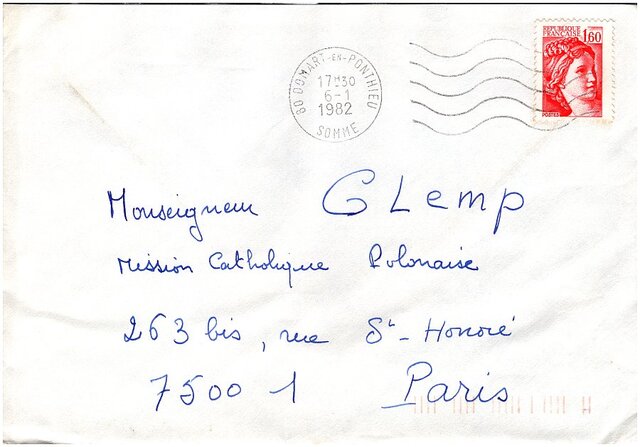 RÉPUBLIQUE
FRANÇAISE 1,60
POSTES
80 DOMART-EN-PONTHIEU
17H30
6-1
1982
SOMME
Monseigneur GLemp
Mission Catholique Polonaise
263 bis, rue St-Honoré
75001 Paris